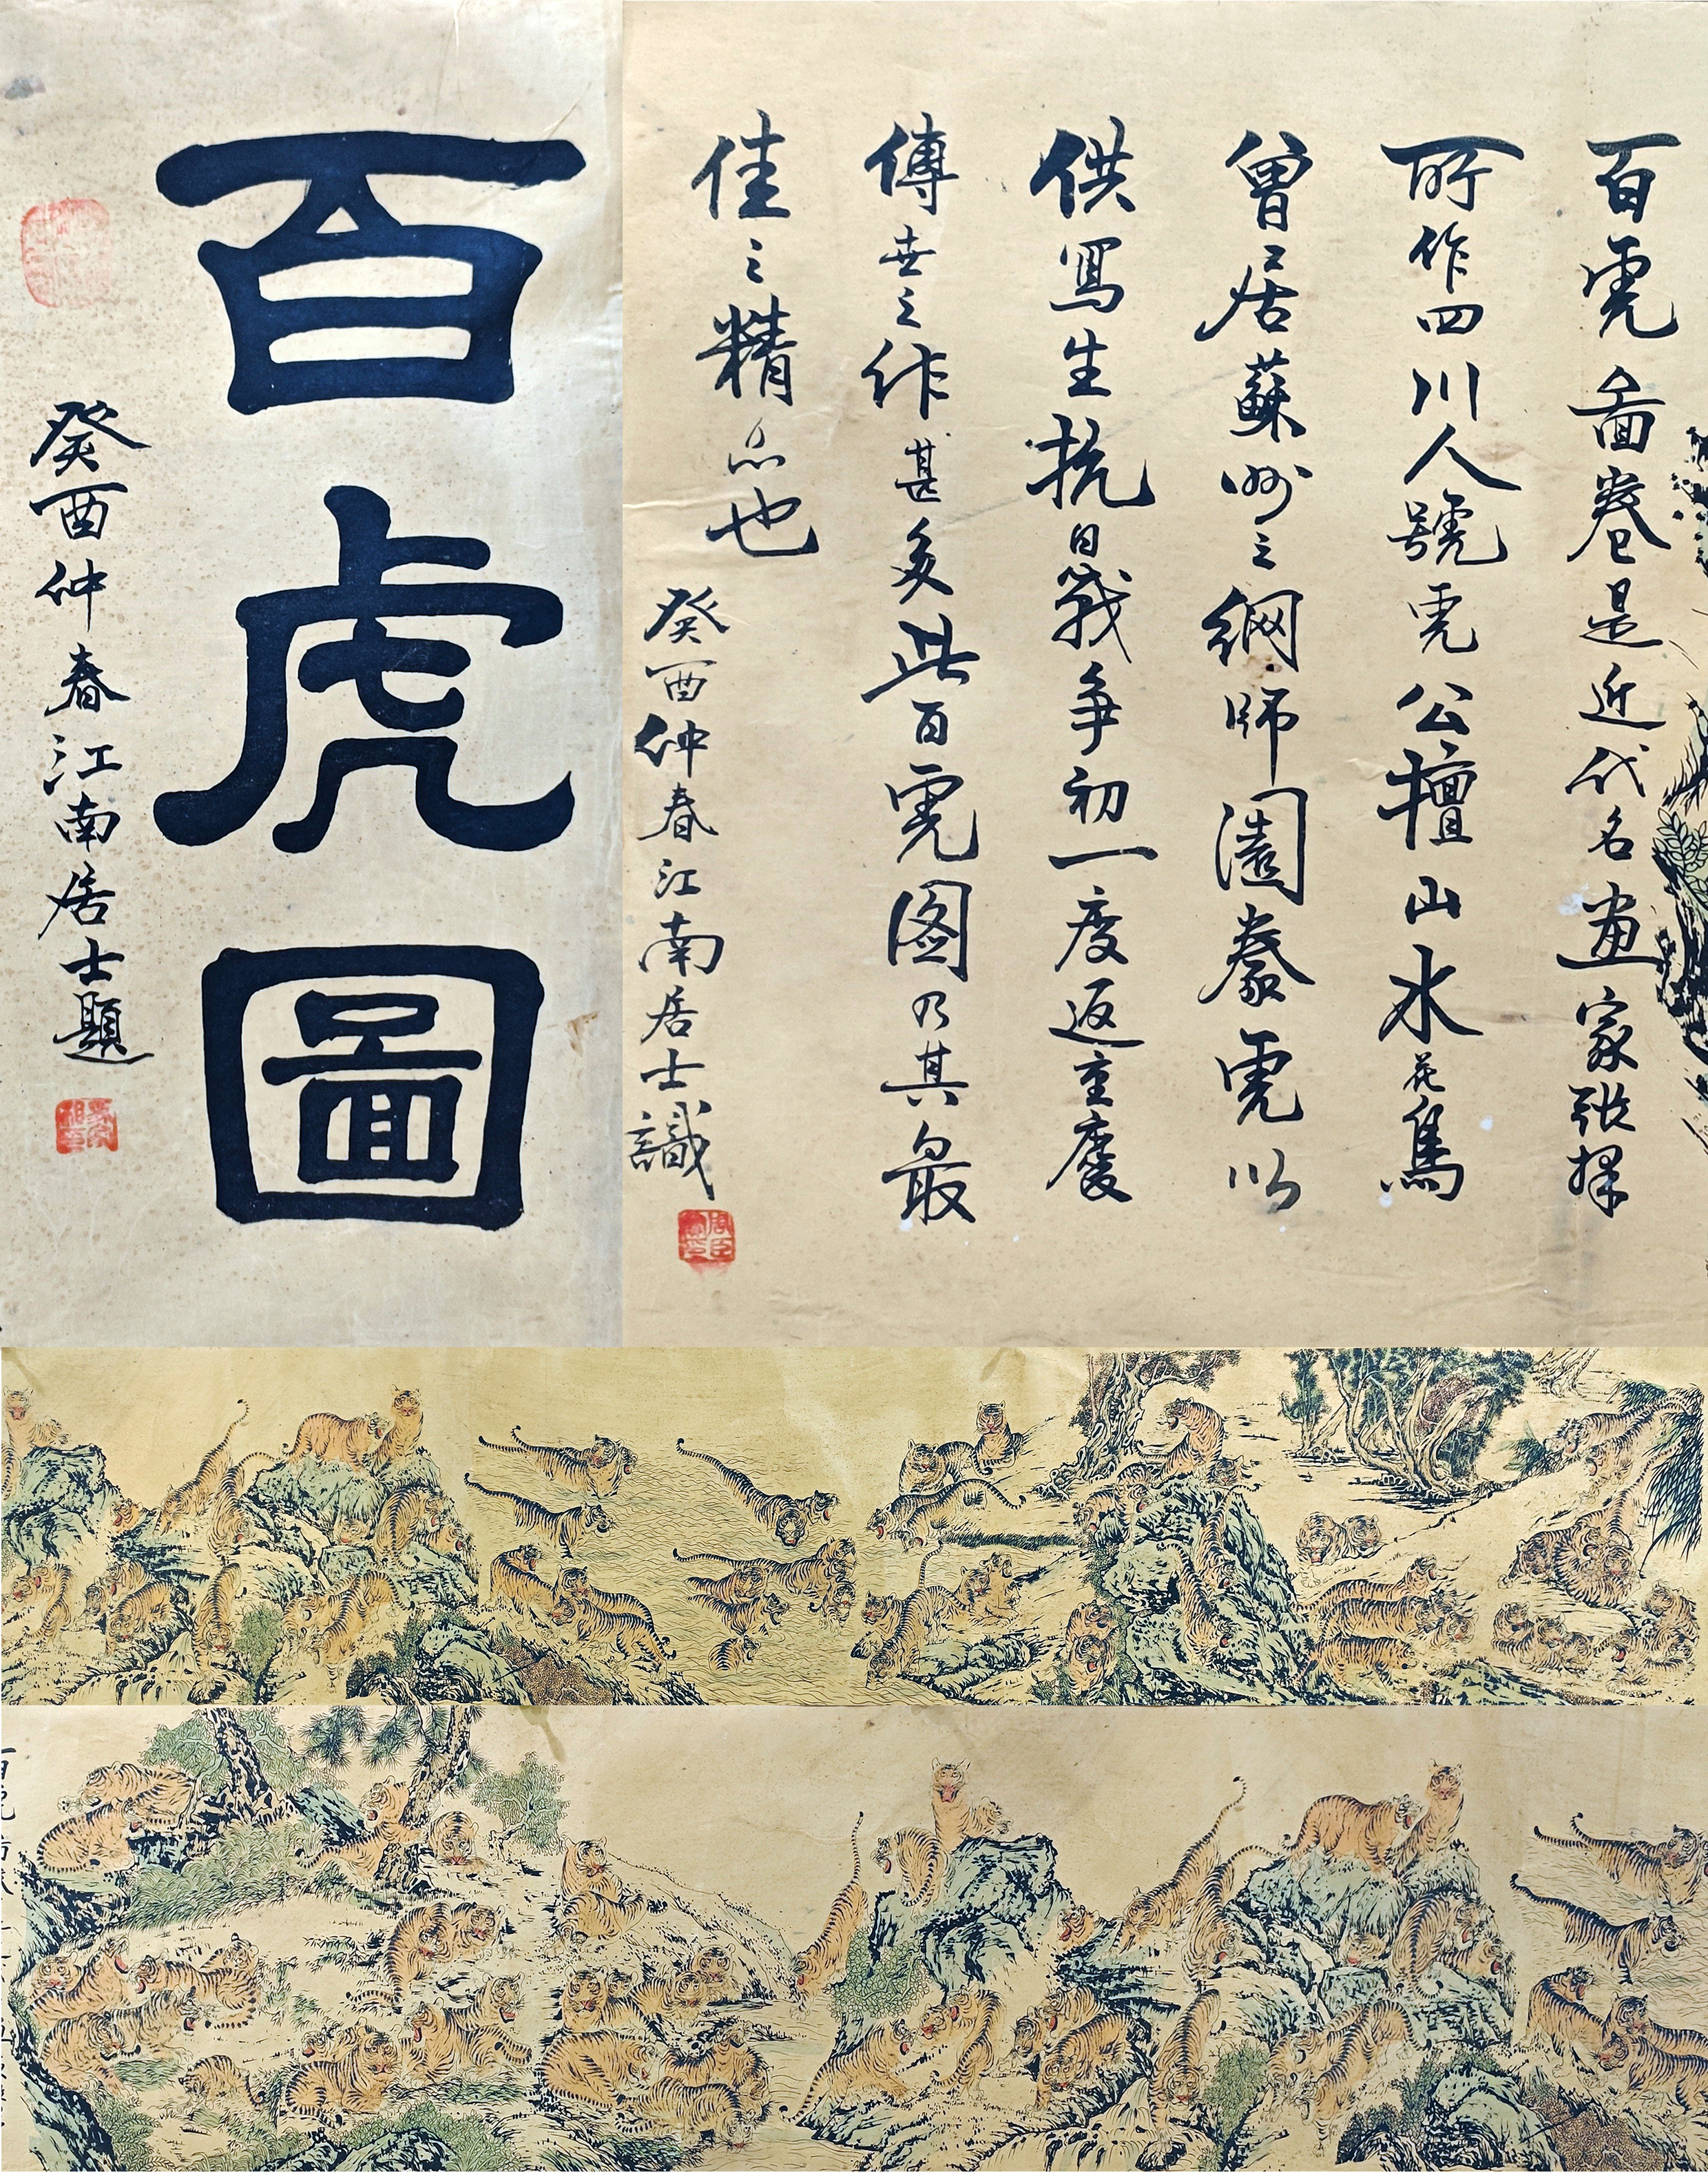 百虎圖
癸酉仲春江南居士題
百虎圖卷是近代名畫家張擇
所作四川人號虎公擅山水花鳥
曾居蘇州之網師園豢虎以
供寫生抗日戰争初一度返重慶
傳世之作甚多此百虎图乃其最
佳之精品也
癸酉仲春江南居士識